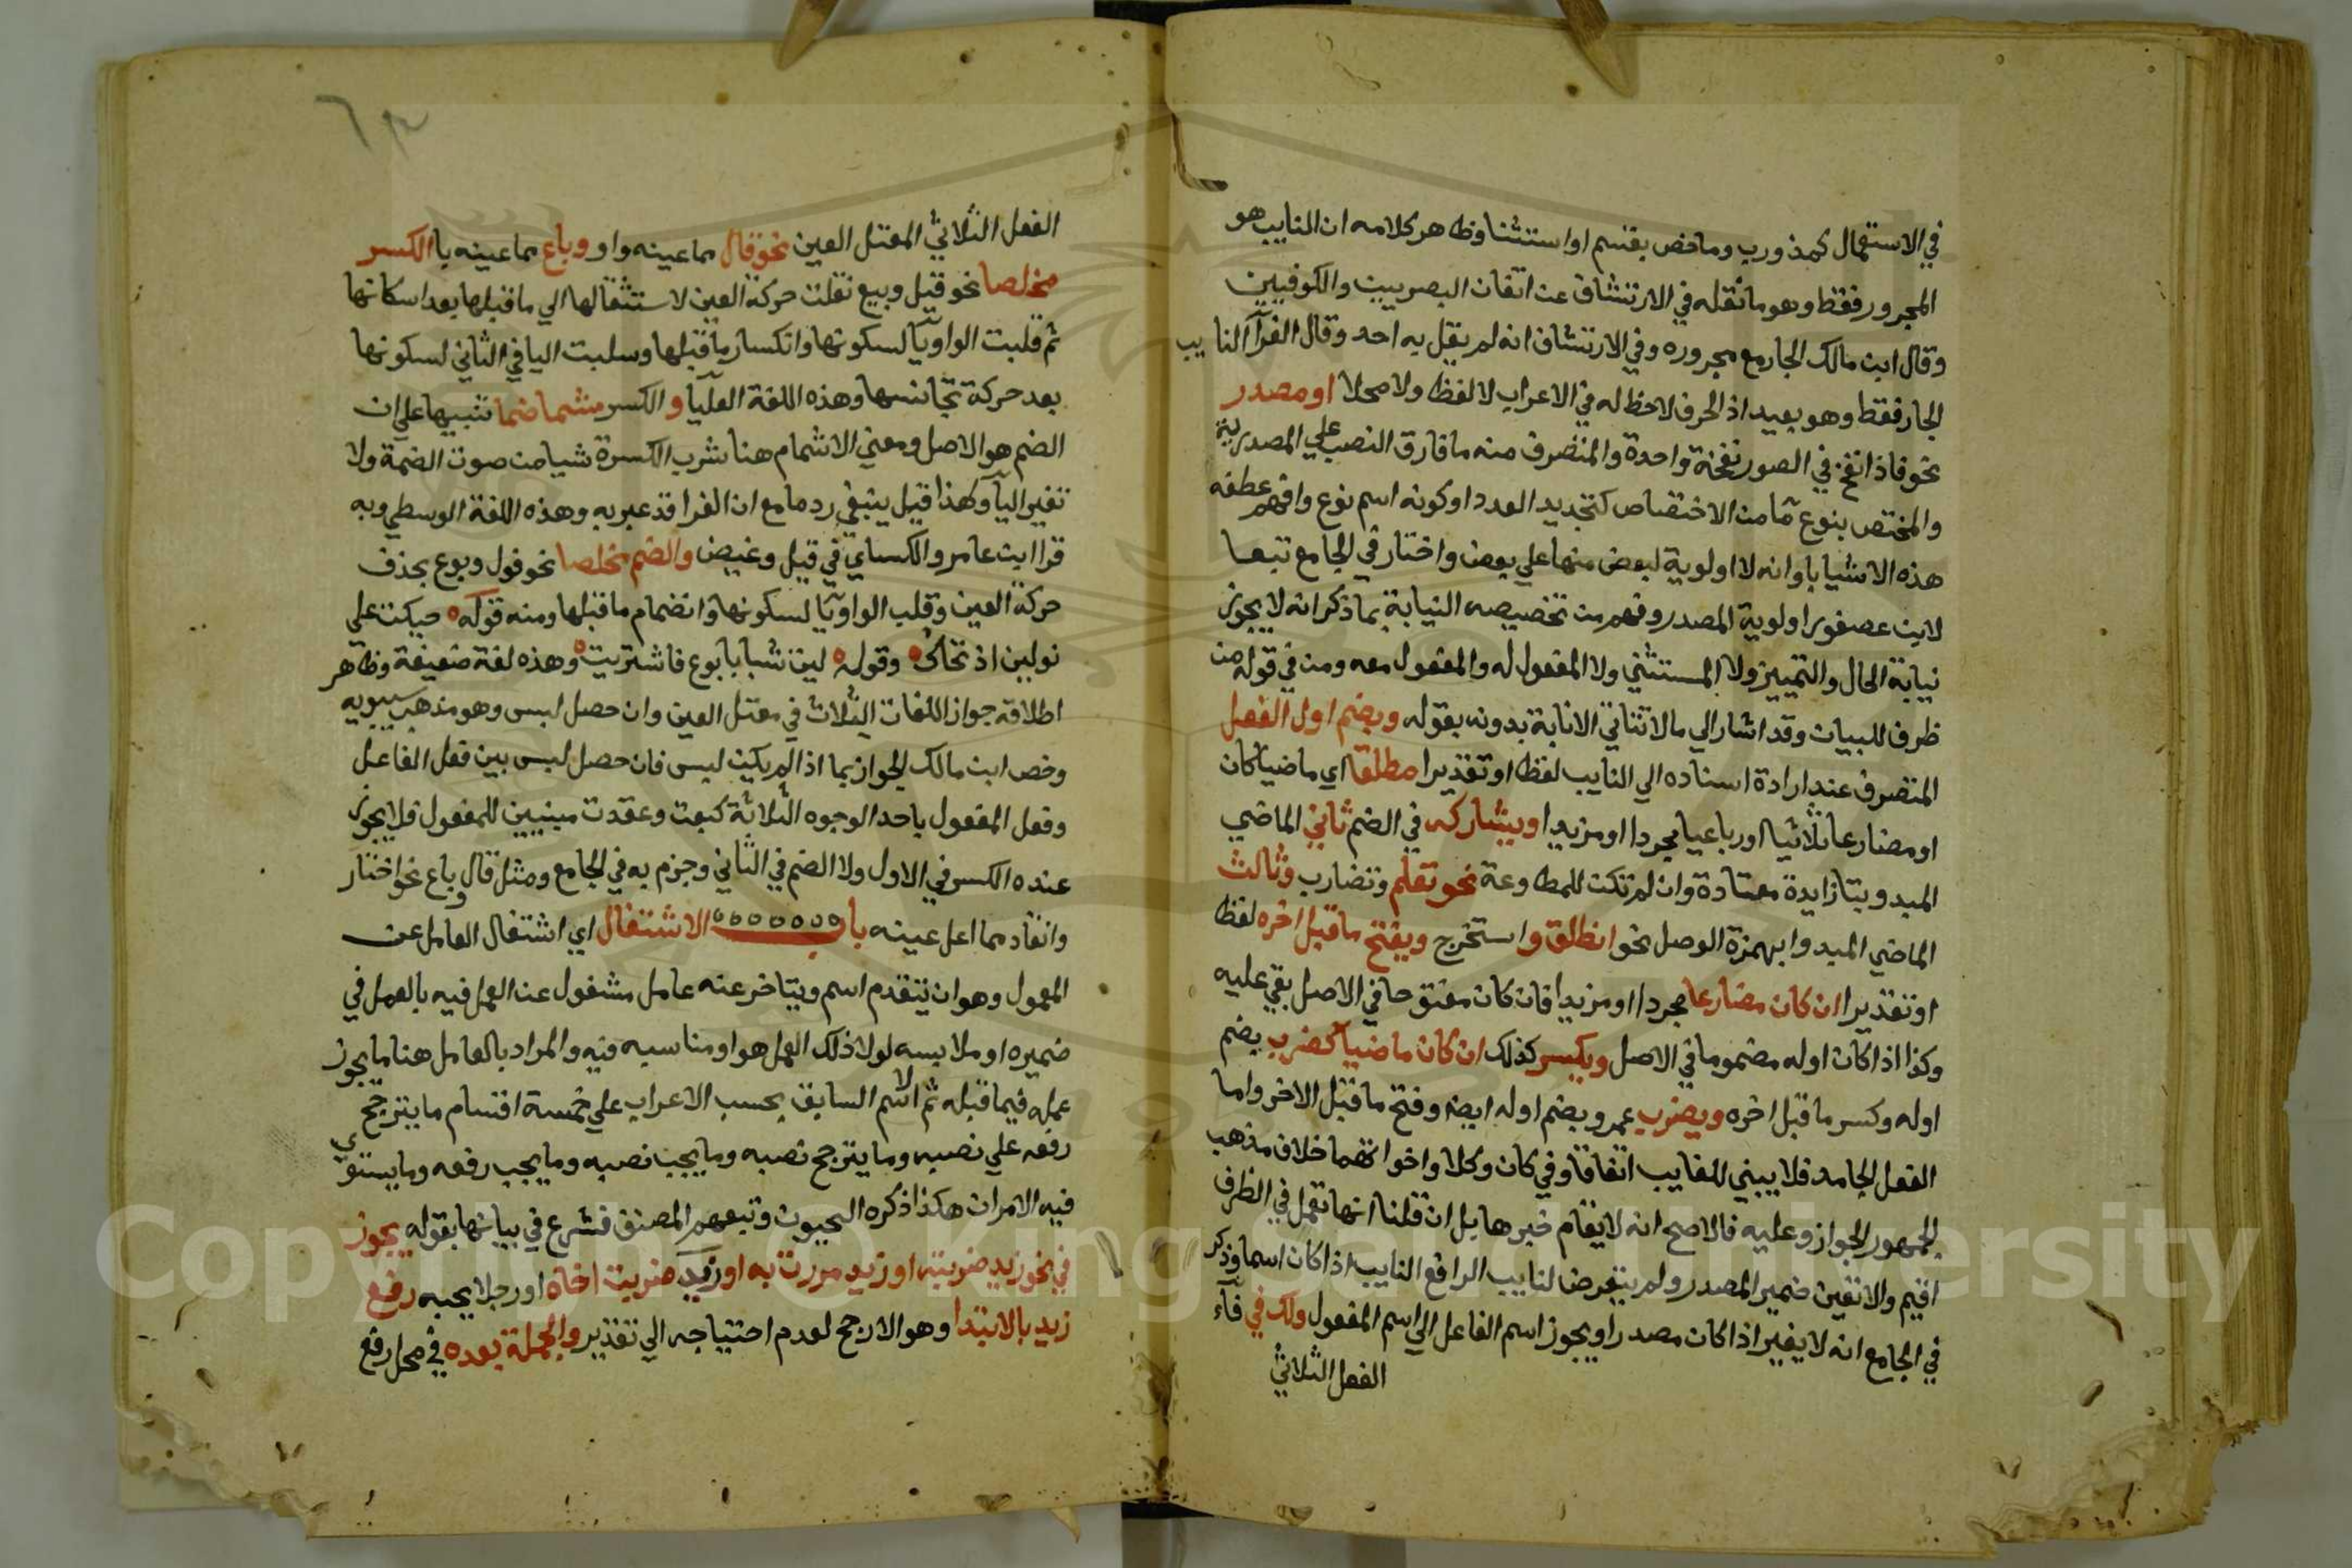 في الاستعمال كمذ ورب وما خص بقسم او استثنا وظاهر كلامه ان النايب هو
المجرور فقط وهو ما نقله في الارتشاف عن اتفاق البصريين والكوفيين
وقال ابن مالك الجار مع مجروره وفي الارتشاف انه لم يقل به احد وقال الفرآ النايب
الجار فقط وهو بعيد اذ الحرف لا حظ له في الاعراب لا لفظا ولا محلا او مصدر
نحو فاذا نفخ في الصور نفخة واحدة والمتصرف منه ما فارق النصب علي المصدرية
والمختص بنوع ما من الاختصاص كتحديد العدد او كونه اسم نوع وافهم عطفه
هذه الاشيا باو انه لا اولوية لبعض منها علي بعض واختار في الجامع تبعا
لابن عصفور اولوية المصدر وفهم من تخصيصه النيابة بما ذكر انه لا يجوز
نيابة الحال والتمييز ولا المستثني ولا المفعول له والمفعول معه ومن في قوله من
ظرف للبيان وقد اشار الي ما لا تتاتي الانابة بدونه بقوله ويضم اول الفعل
المتصرف عند ارادة اسناده الي النايب لفظا او تقديرا مطلقا اي ماضيا كان
او مضارعا ثلاثيا او رباعيا مجردا او مزيدا ويشاركه في الضم ثاني الماضي
المبدو بتا زايدة معتادة وان لم تكن للمطاوعة نحو تعلم وتضارب وثالث
الماضي المبدوا بهمزة الوصل نحو انطلق واستخرج ويفتح ما قبل اخره لفظا
او تقديرا ان كان مضارعا مجردا او مزيدا فان كان مفتوحا في الاصل بقي عليه
وكذا اذا كان اوله مضموما في الاصل ويكسر كذلك ان كان ماضيا كضرب بضم
اوله وكسر ما قبل اخره ويضرب عمرو بضم اوله ايضا وفتح ما قبل الاخر واما
الفعل الجامد فلا يبني للغايب اتفاقا وفي كان وكاد واخواتهما خلاف مذهب
الجمهور الجواز وعليه فالاصح انه لا يقام خبرها بل ان قلنا انها تعمل في الظرف
اقيم والا تعين ضمير المصدر ولم يتعرض لنايب الرافع النايب اذا كان اسما وذكر
في الجامع انه لا يغير اذا كان مصدرا ويجوز اسم الفاعل الي اسم المفعول ولك في فآء
الفعل الثلاثي
الفعل الثلاثي المعتل العين نحو قال مما عينه واو وباع مما عينه يا الكسر
مخلصا نحو قيل وبيع نقلت حركة العين لاستثقالها الي ما قبلها بعد اسكانها
ثم قلبت الواو يآ لسكونها وانكسار ما قبلها وسلبت اليا في الثاني لسكونها
بعد حركة تجانسها وهذه اللغة العليا والكسر مشما ضما تنبيها علي ان
الضم هو الاصل ومعني الاشمام هنا شرب الكسرة شيا من صوت الضمة ولا
تغير اليآ وكهذا قيل ينبغي رد ما مع ان الفرا قد عبر به وهذه اللغة الوسطي وبه
قرا ابن عامر والكساي في قيل وغيض والضم مخلصا نحو قول وبوع بحذف
حركة العين وقلب الواو يآ لسكونها وانضمام ما قبلها ومنه قوله حيكت علي
نولين اذ تحاك وقوله ليت شبابا بوع فاشتريت وهذه لغة ضعيفة وظاهر
اطلاقه جواز اللغات الثلاث في معتل العين وان حصل لبس وهو مذهب سيبويه
وخص ابن مالك الجواز بما اذا لم يكن لبس فان حصل لبس بين فعل الفاعل
وفعل المفعول باحد الوجوه الثلاثة كبعت وعقدت مبنيين للمفعول فلا يجوز
عنده الكسر في الاول ولا الضم في الثاني وجزم به في الجامع ومثل قال وباع نحو اختار
وانقاد مما اعل عينه باب الاشتغال اي اشتغال العامل عن
المعمول وهو ان يتقدم اسم ويتاخر عنه عامل مشغول عن العمل فيه بالعمل في
ضميره او ملابسه لولا ذلك العمل هو او مناسبه فيه والمراد بالعامل هنا ما يجوز
عمله فيما قبله ثم الاسم السابق بحسب الاعراب علي خمسة اقسام ما يترجح
رفعه علي نصبه وما يترجح نصبه وما يجب نصبه وما يجب رفعه وما يستوي
فيه الامران هكذا ذكره النحيون وتبعهم المصنف فشرع في بيانها بقوله يجوز
في نحو زيد ضربته او زيد مررت به او زيد ضربت اخاه او رجلا يحبه رفع
زيد بالابتدا وهو الارجح لعدم احتياجه الي تقدير والجملة بعده في محل رفع
Copyright © King Saud University